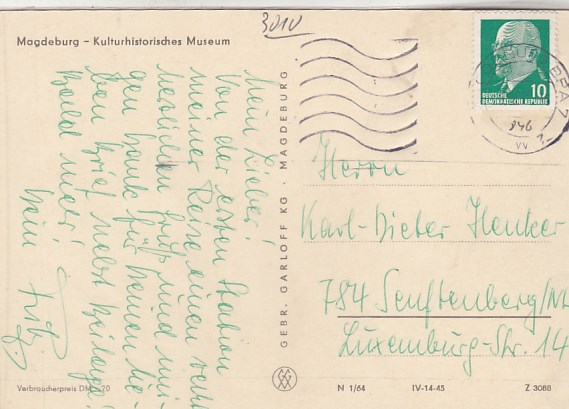 3010
Magdeburg – Kulturhistorisches Museum
Mein Lieber!
Von der ersten Station
meiner Reise einen recht
herzlichen Gruß und innigen
Dank für Deinen lieben
Brief nebst Beilage!
Bald mehr!
Dein
Fritz
GEBR. GARLOFF KG · MAGDEBURG
10
DEUTSCHE
DEMOKRATISCHE REPUBLIK
Herrn
Karl-Dieter Henker
784 Senftenberg/NL
Luxemburg-Str. 14
Verbraucherpreis DM -.20
N 1/64
IV-14-45
Z 3088